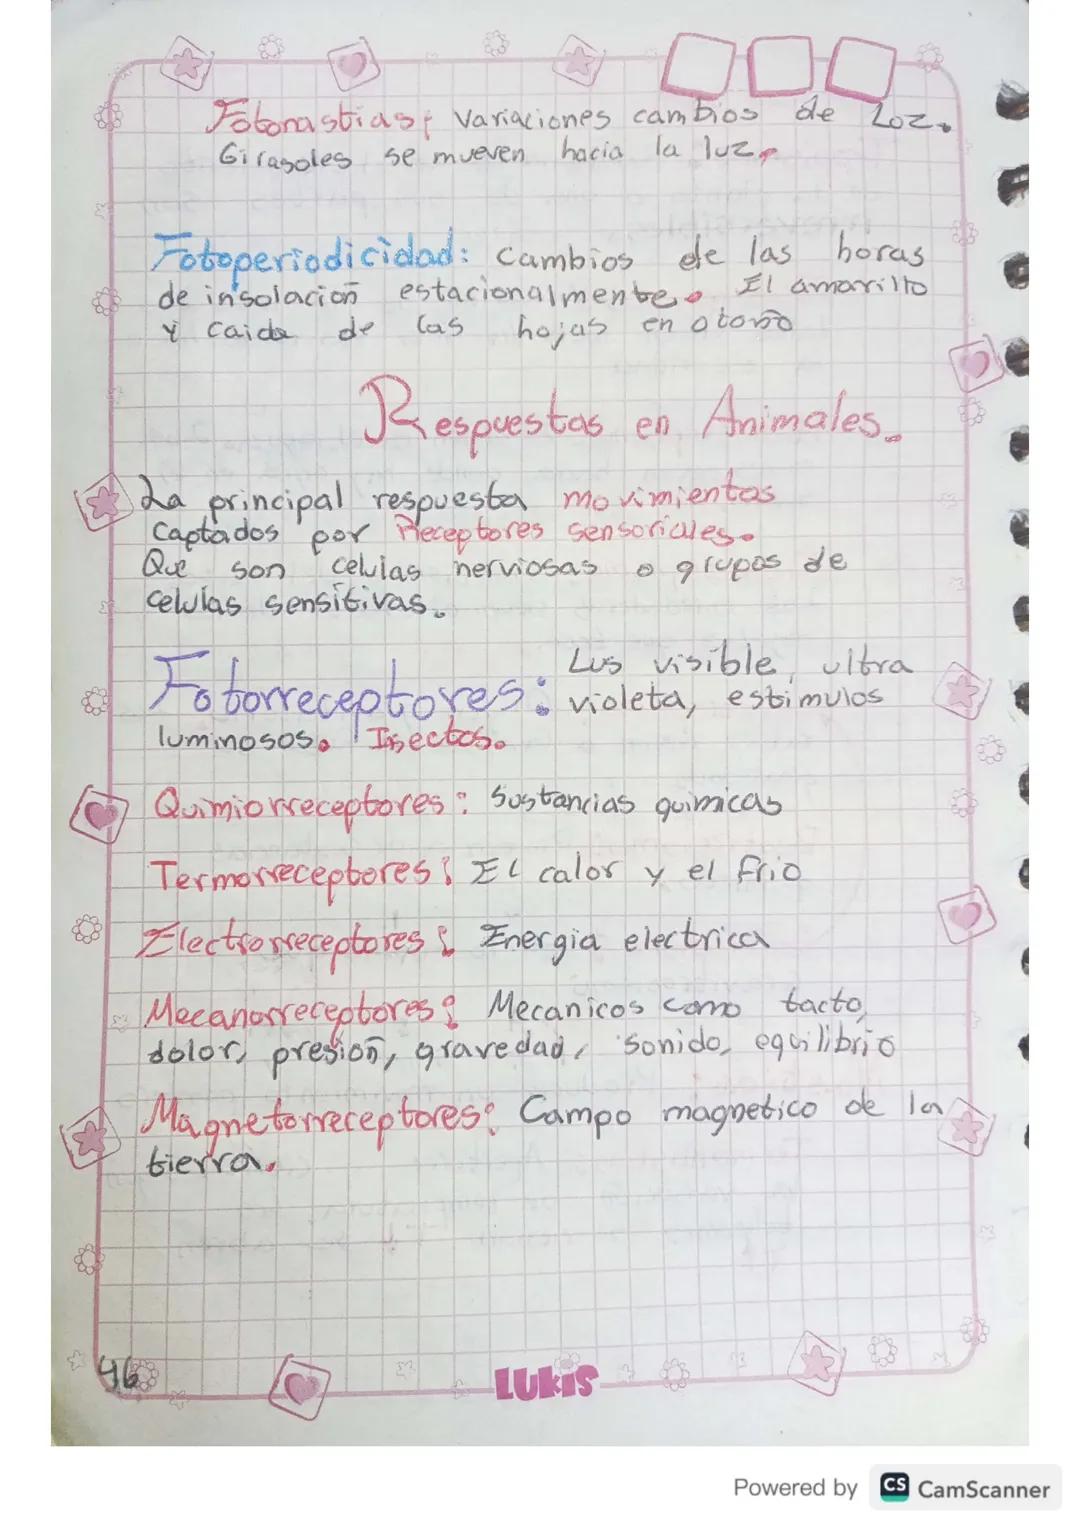 Fotonastias: Variaciones cambios de Loz.
Girasoles se mueven hacia la luz.
Fotoperiodicidad: Cambios de las horas
de insolación estacionalmente. El amarillo
y caida de las hojas en otoño
Respuestas en Animales.
La principal respuesta movimientos
Captados por Receptores sensoriales.
Que son celulas nerviosas o grupos de
celulas sensitivas.
Fotorreceptores: Lus visible, ultra
violeta, estimulos
luminosos. Insectos.
Quimiorreceptores: Sustancias quimicas
Termorreceptores: El calor y el frio
Electrorreceptores: Energia electrica
Mecanorreceptores: Mecanicos como tacto,
dolor, presión, gravedad, sonido, equilibrio
Magnetorreceptores: Campo magnetico de la
tierra.
46
LUKIS
Powered by CS CamScanner